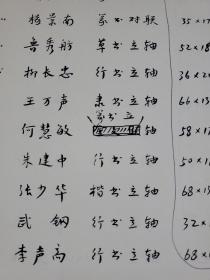 杨景南 篆书对联 35×17
鲁秀舫 草书立轴 52×18
柳长忠 行书立轴 36×2
王万声 隶书立轴 66×13
何慧敏 篆书立轴 58×1
朱建中 行书立轴 50×1
张少华 楷书立轴 68×13
武钢 行书立轴 32×
李声高 行书立轴 68×1